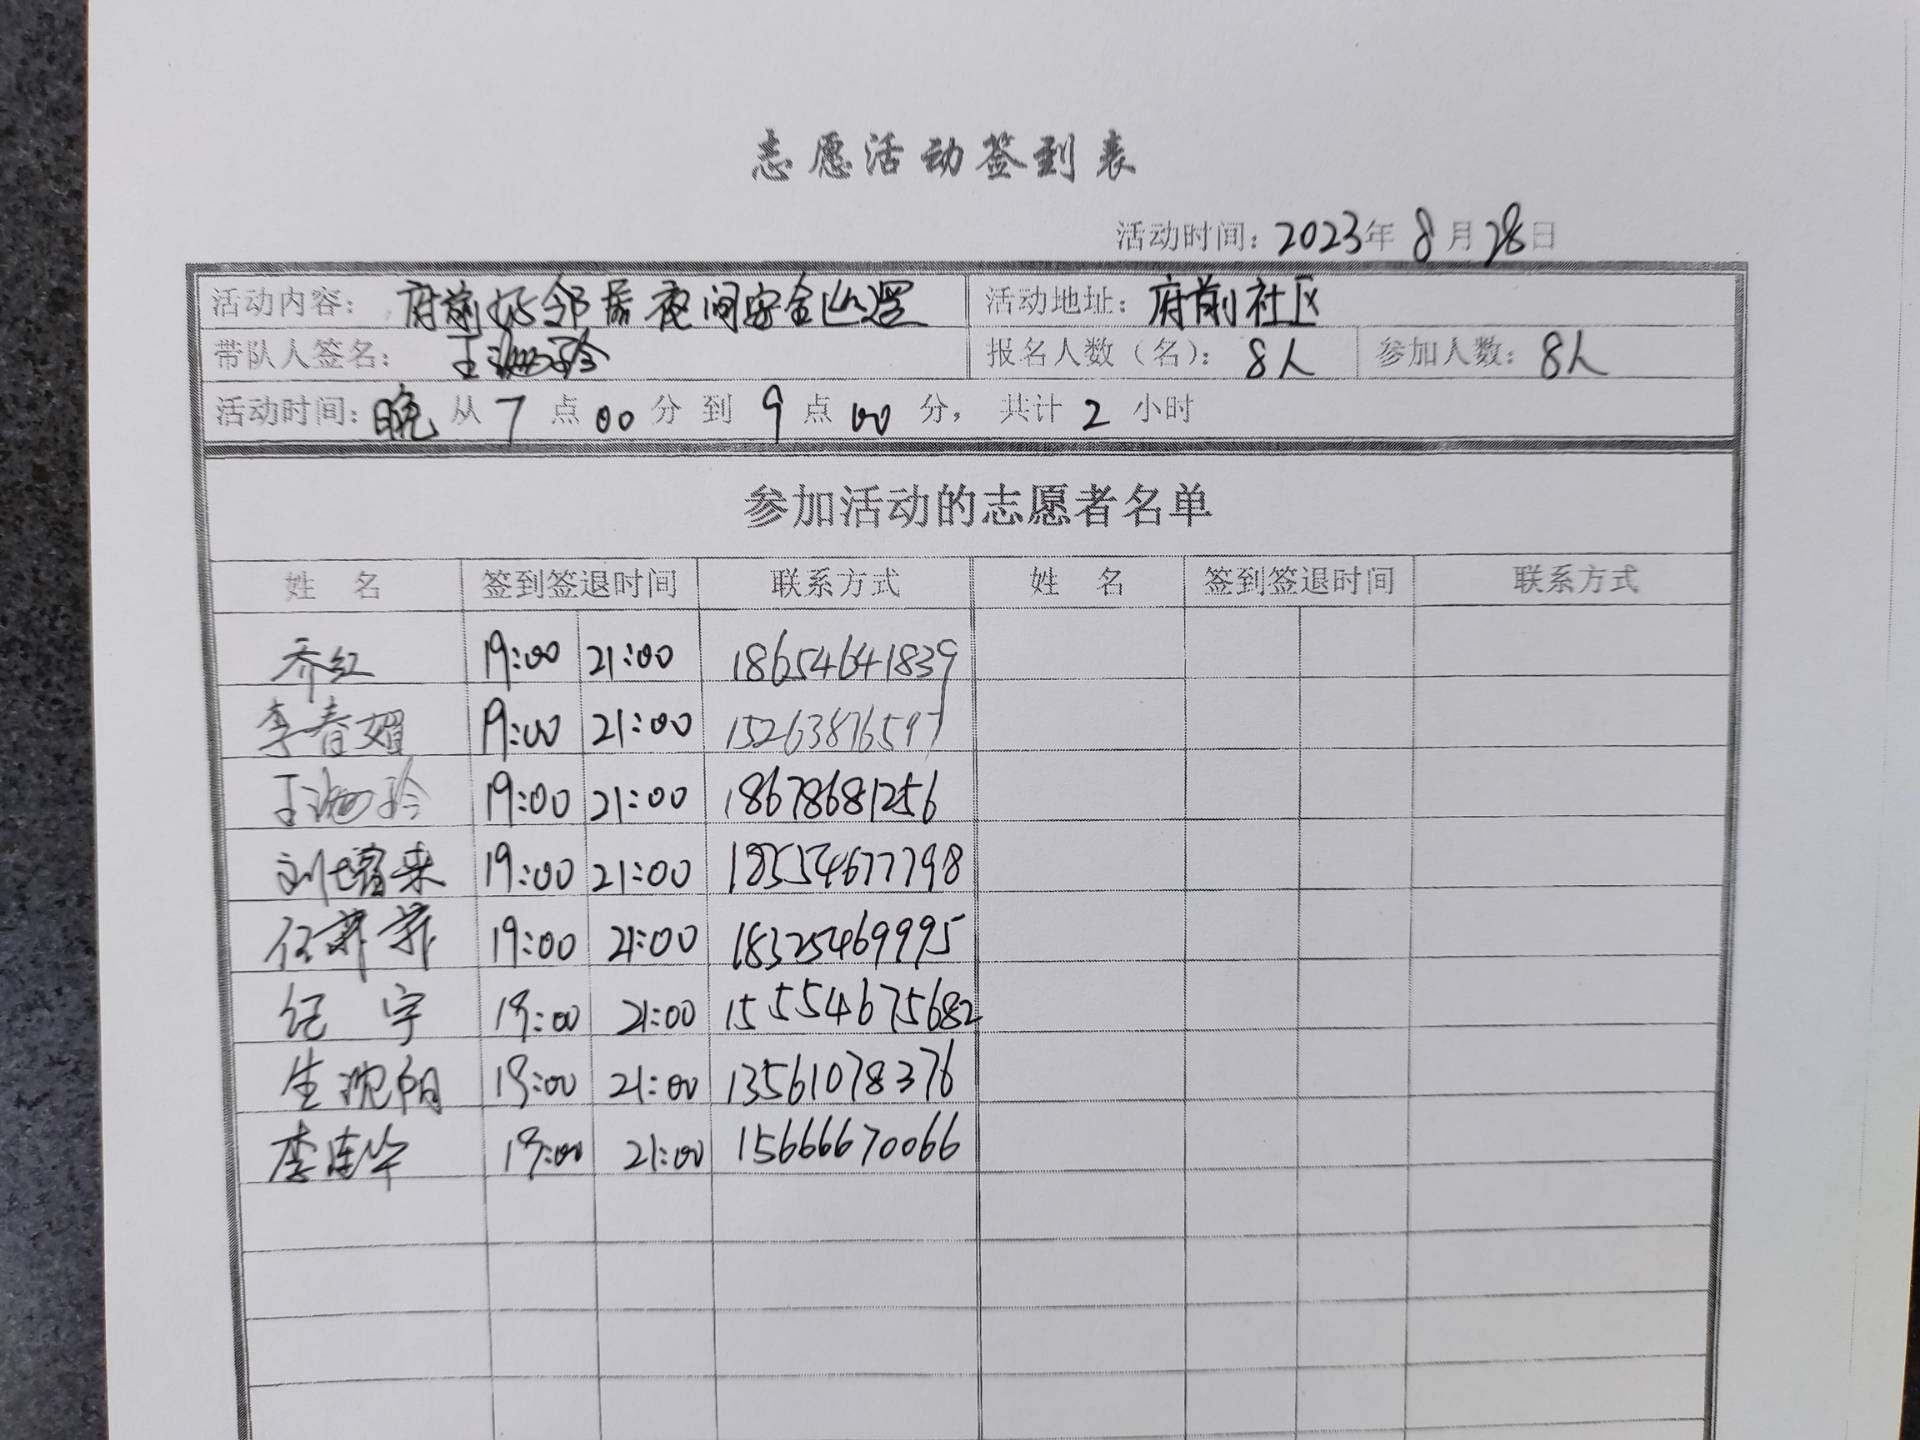 志愿活动签到表
活动时间：2023年8月28日
活动内容：府前好邻居夜间安全巡逻 活动地址：府前社区
带队人签名：王 报名人数（名）：8人 参加人数：8人
活动时间：晚从7点00分到9点00分，共计2小时
参加活动的志愿者名单
姓 名 签到签退时间 联系方式 姓 名 签到签退时间 联系方式
乔红 19:00 21:00 18654641839
李春娟 19:00 21:00 15263876597
王 19:00 21:00 18678681256
刘增来 19:00 21:00 18554677798
任菲菲 19:00 21:00 18325469995
纪宇 19:00 21:00 15554675682
生沈阳 19:00 21:00 13561078376
李连华 19:00 21:00 15666670066